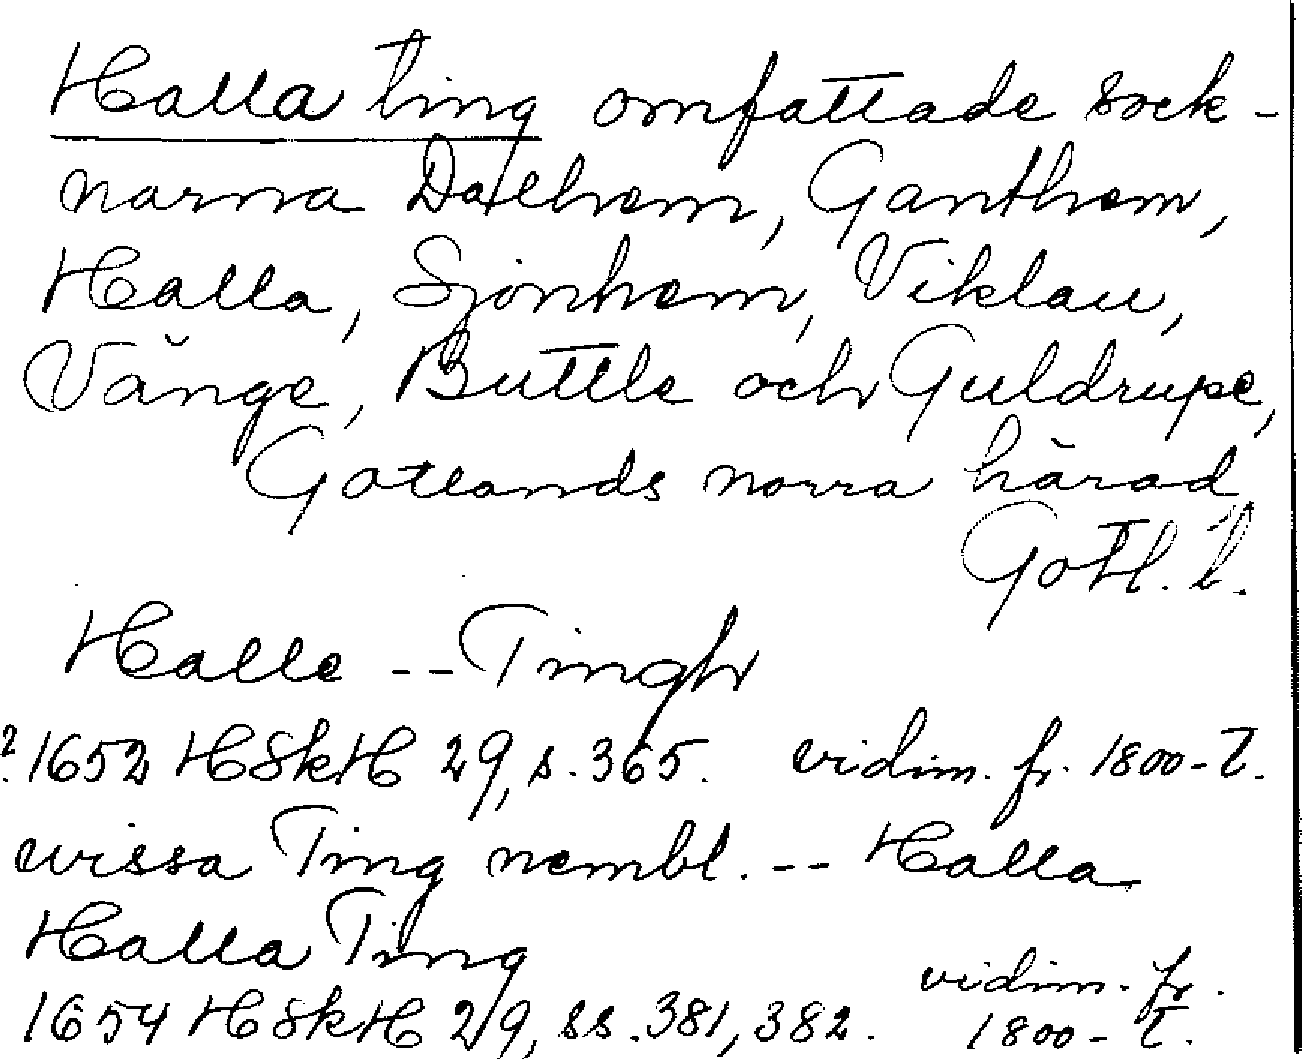 Halla ting omfattade sock-
narna Dalhem, Ganthem,
Halla, Sjonhem, Viklau,
Vänge, Buttle och Guldrupe,
Gotlands norra härad,
Gotl. l.
Halle -- Tingh
? 1652 HSkH 29, s. 365. vidim. fr. 1800-t.
wissa Ting nembl. -- Halla
Halla Ting
1654 HSkH 29, ss. 381, 382. vidim. fr.
1800-t.